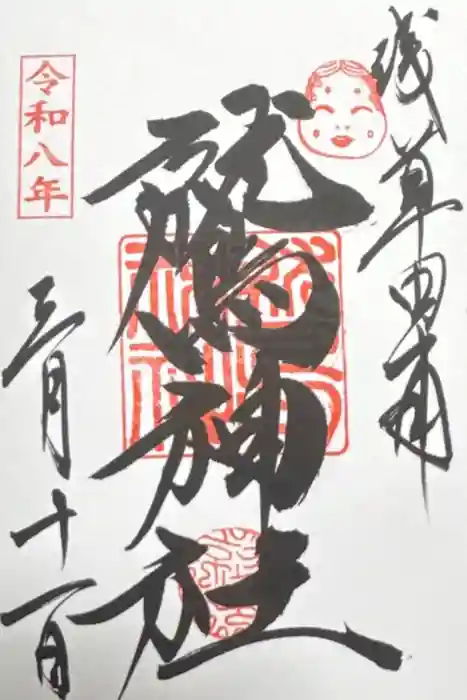 浅草田甫
鷲神社
令和八年
三月十一日